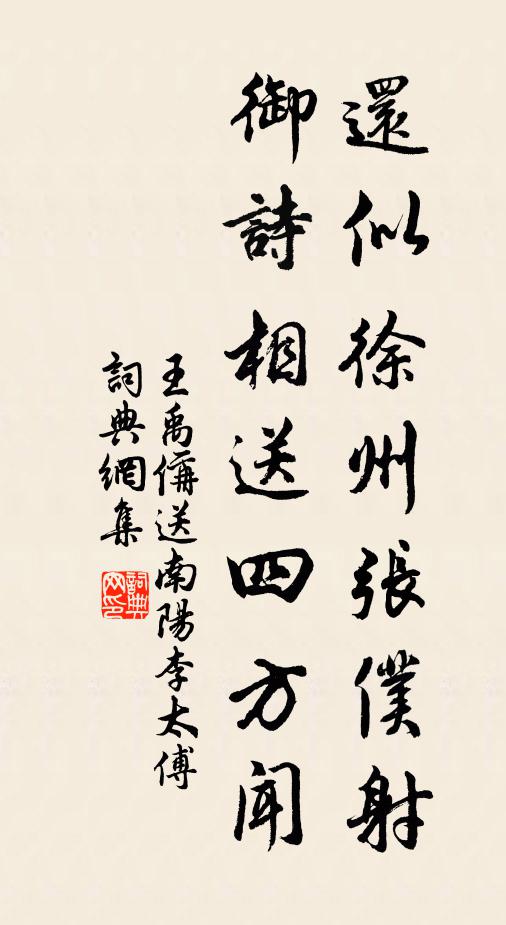 還似徐州張僕射
御詩相送四方聞
王禹偁送南陽李太傅
詞典網集
詞典
网印